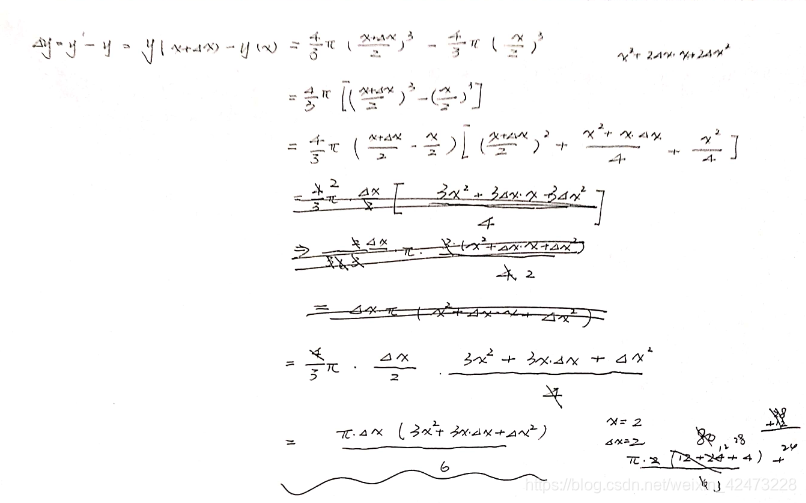 Δy = y' - y = y(x+Δx) - y(x) = 4/3 π ((x+Δx)/2)³ - 4/3 π (x/2)³
x² + 2Δx·x + 2Δx²
= 4/3 π [((x+Δx)/2)³ - (x/2)³]
= 4/3 π ((x+Δx)/2 - x/2) [((x+Δx)/2)² + (x² + x·Δx)/4 + x²/4]
= 4/3 π · Δx/2 [(3x² + 3Δx·x 3Δx²)/4]
⇒ Δx · π · 3(x² + Δx·x + Δx²)
4 2
= Δx·π (x² + Δx·x + Δx²)
= 4/3 π · Δx/2 · (3x² + 3x·Δx + Δx²)/4
= π·Δx (3x² + 3x·Δx + Δx²)/6
x = 2
Δx = 2
π·2 (12 + 24 + 4)
https://blog.csdn.net/weixin_42473228